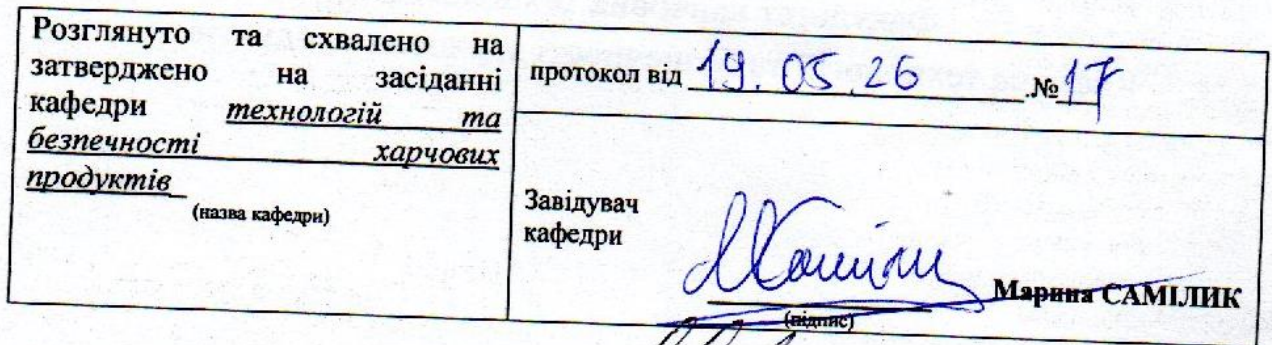 Розглянуто та схвалено на
затверджено на засіданні
кафедри технологій та
безпечності харчових
продуктів_
(назва кафедри)
протокол від 19.05.26 .№17
Завідувач
кафедри
Марина САМІЛИК
(підпис)